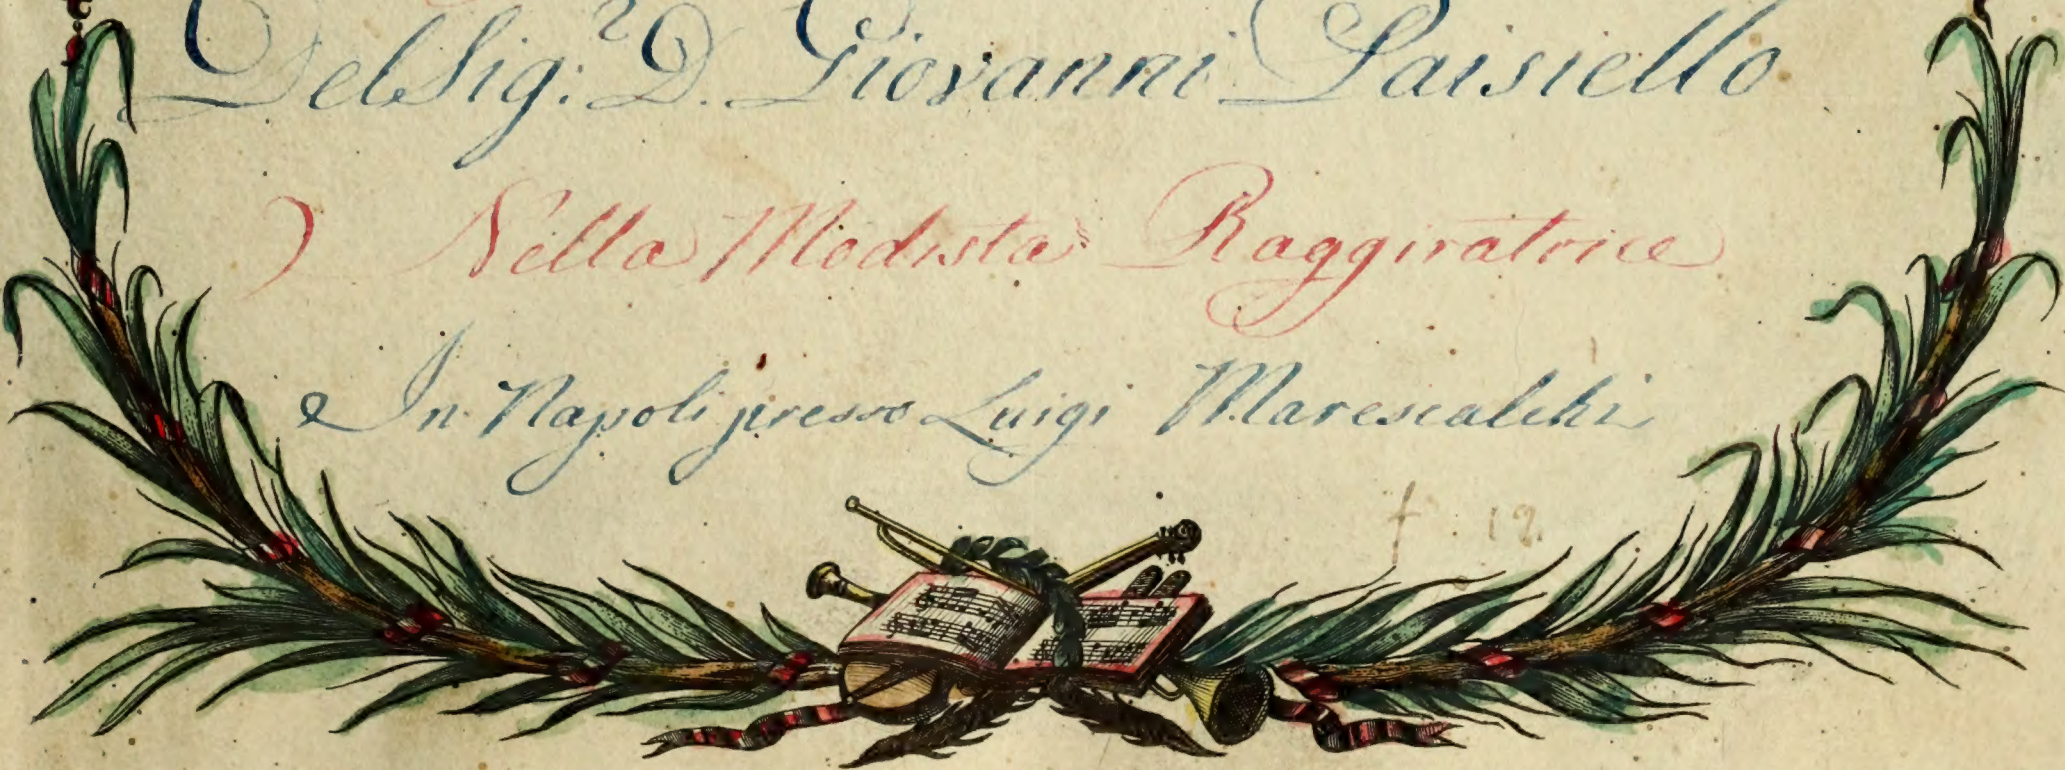 Del Sig:r D. Giovanni Paisiello
Nella Modista Raggiratrice
In Napoli presso Luigi Marescalchi
f. 12.